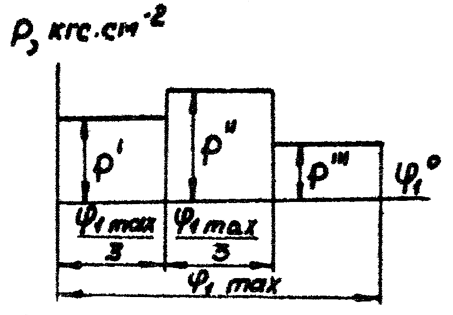 P, кгс.см⁻²
P' P'' P''' φ₁°
φ₁ max/3 φ₁ max/3
φ₁ max